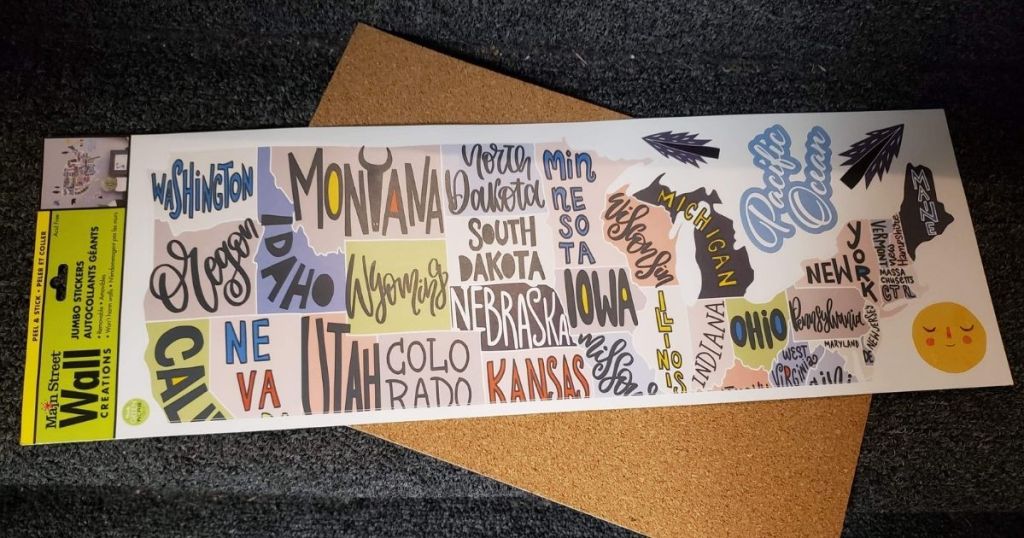 PEEL & STICK • PELER ET COLLER
Main Street
Wall
CREATIONS
JUMBO STICKERS
AUTOCOLLANTS GÉANTS
WASHINGTON
Oregon
CALI
NE
VA
IDAHO
MONTANA
Wyoming
UTAH
COLO
RADO
North
Dakota
SOUTH
DAKOTA
NEBRASKA
KANSAS
MIN
NE
SO
TA
IOWA
Missouri
Wisconsin
ILL
INOIS
MICHIGAN
INDIANA
OHIO
WEST
Virginia
Pacific
Ocean
NEW YORK
Pennsylvania
MARYLAND
NEW JERSEY
VERMONT
New
Hampshire
MASSA
CHUSETTS
CT R
MAINE